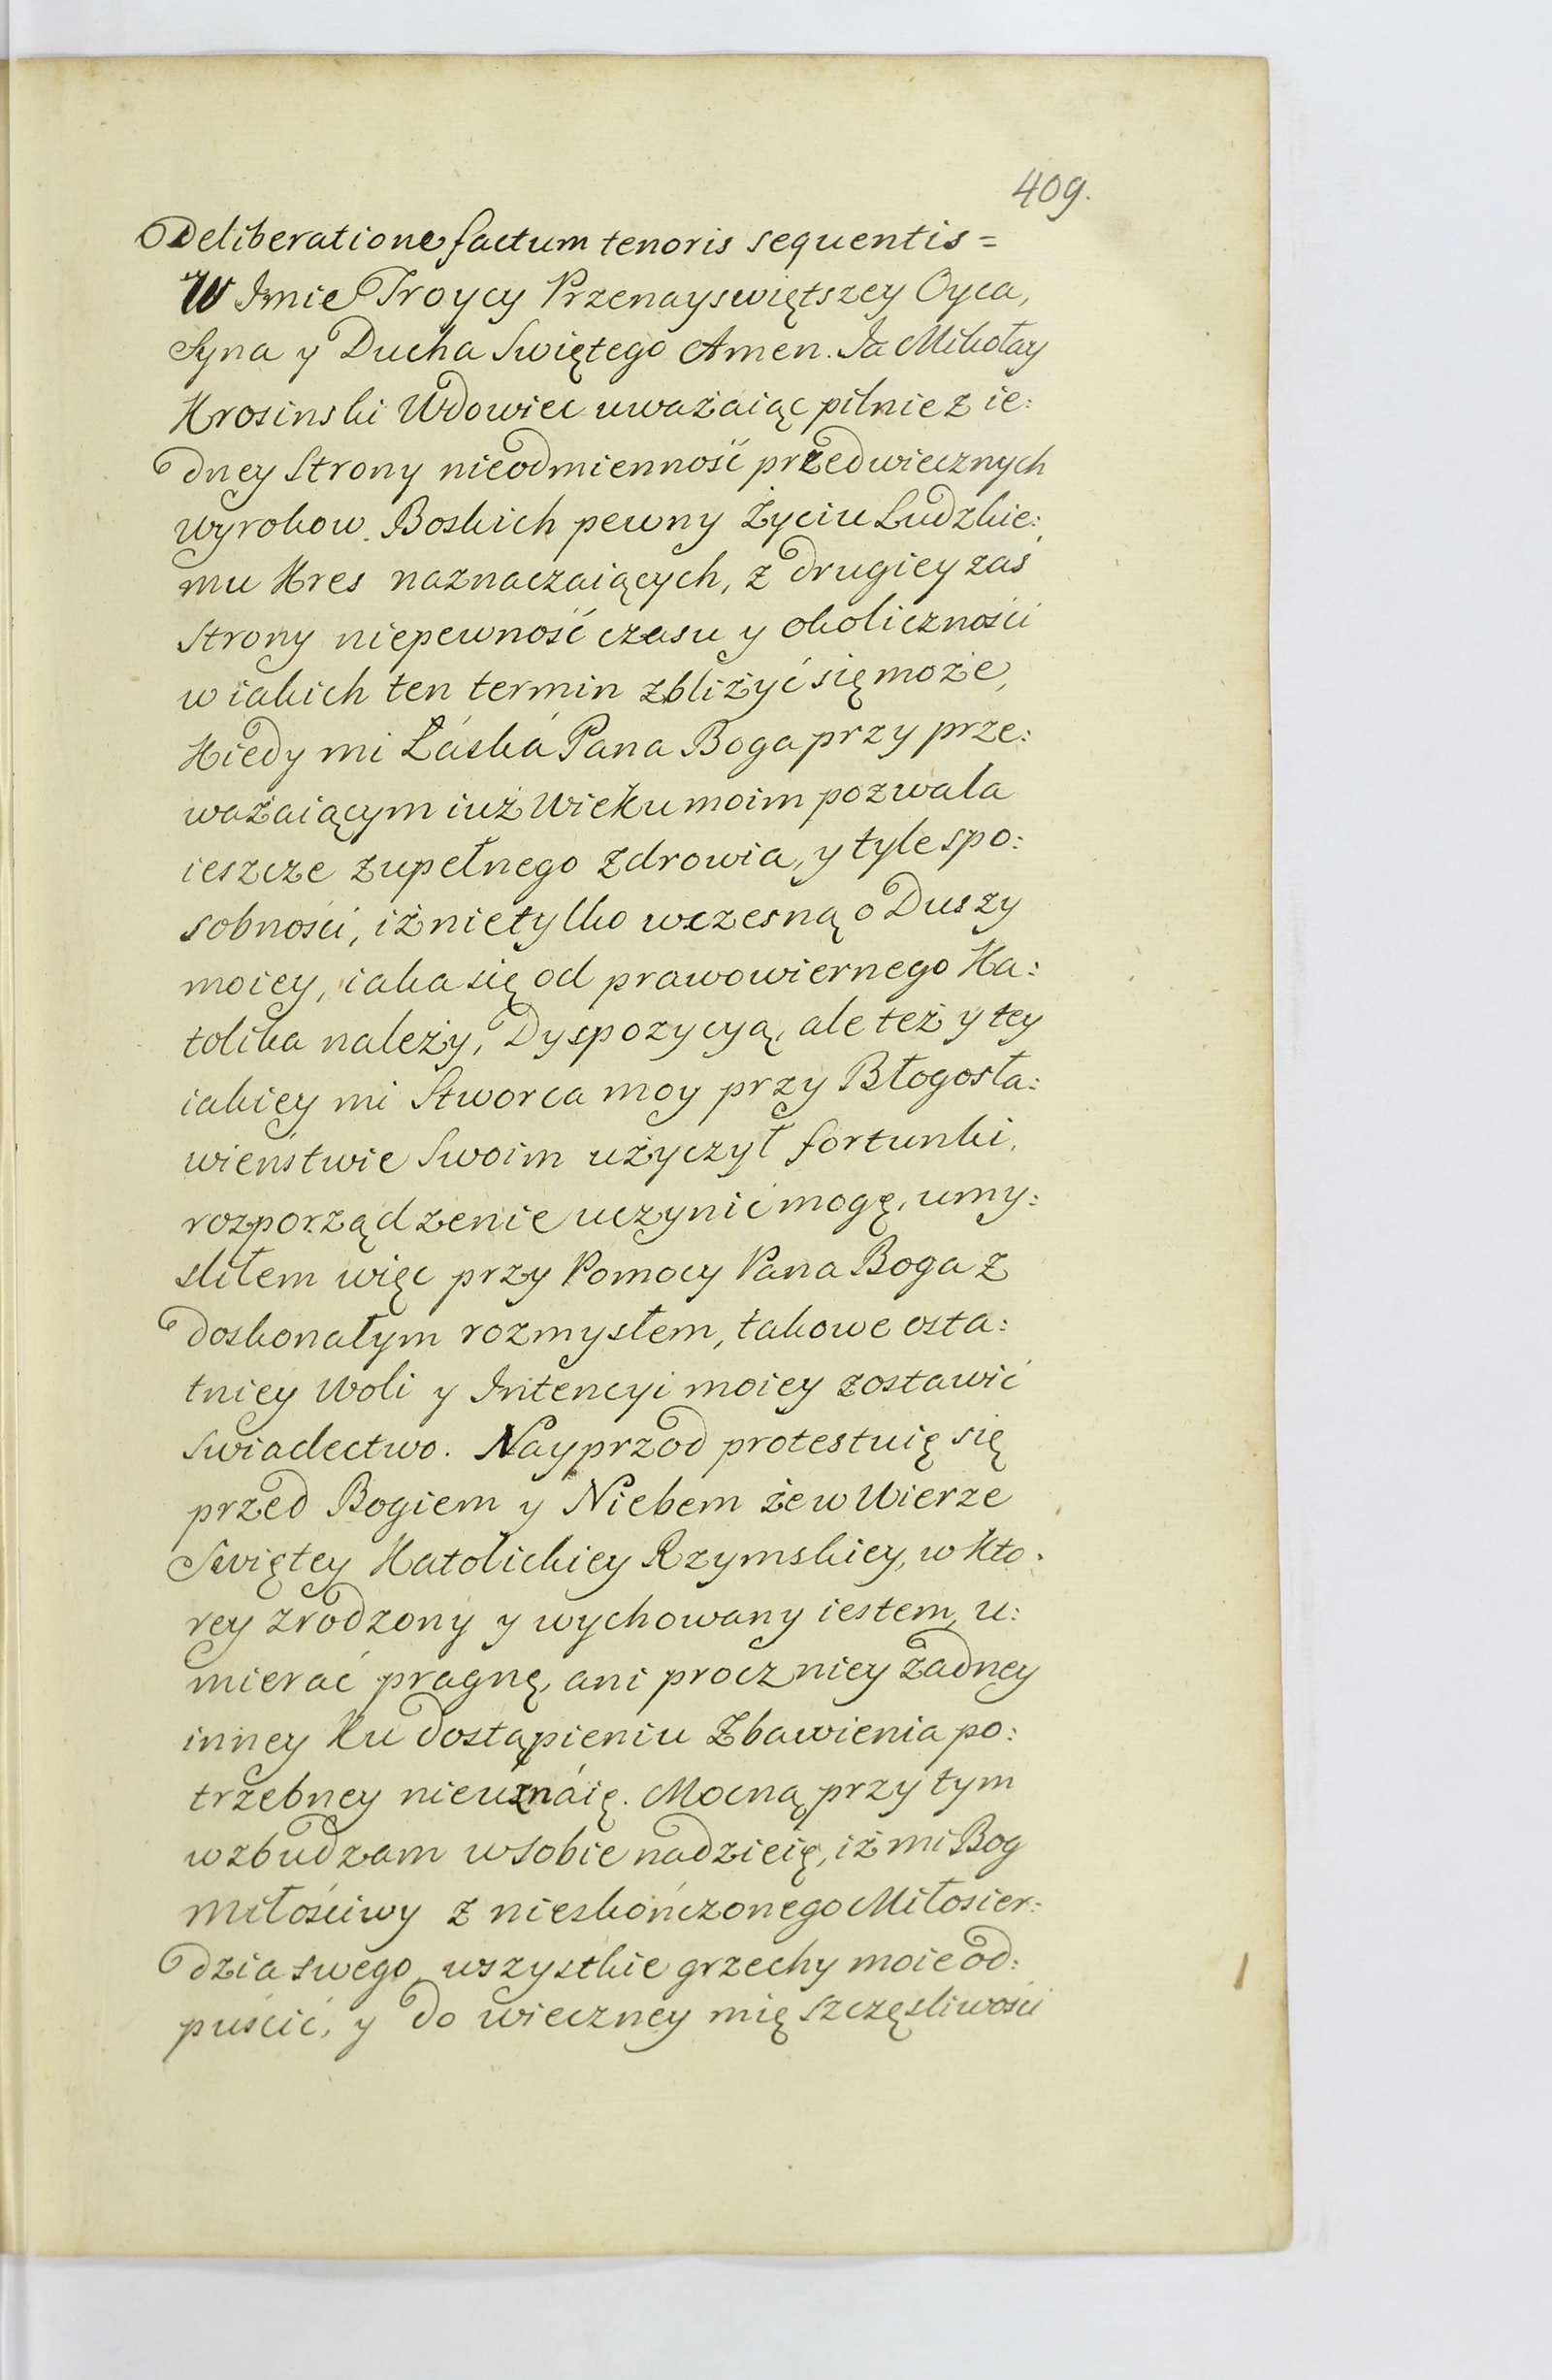 409.
Deliberatione factum tenoris sequentis =
W Jmie Troycy Przenayswiętszey Oyca,
Syna y Ducha Swiętego Amen. Ja Mikołay
Krosinski Wdowiec uważaiąc pilnie z ie:
dney Strony nieodmienność przedwiecznych
wyrokow Boskich pewny Życiu Ludzkie:
mu Kres naznaczaiących, z drugiey zaś
Strony niepewność czasu y okoliczności
w iakich ten termin zbliżyć się może,
Kiedy mi Łáská Pana Boga przy prze:
ważaiącym iuż Wieku moim pozwala
ieszcze zupełnego zdrowia, y tyle spo:
sobności, iż nietylko wczesną o Duszy
moiey, iaka się od prawowiernego Ka:
tolika należy, Dyspozycyą, ale też y tey
iakiey mi Stworca moy przy Błogosła:
wieństwie Swoim użyczył fortunki,
rozporządzenie uczynić mogę, umy:
sliłem więc przy Pomocy Pana Boga z
doskonałym rozmysłem, takowe osta:
tniey Woli y Intencyi moiey zostawić
swiadectwo. Nayprzod protestuię się
przed Bogiem y Niebem że w Wierze
Swiętey Katolickiey Rzymskiey, w Kto:
rey zrodzony y wychowany iestem, u:
mierać pragnę, ani procz niey żadney
inney Ku dostąpieniu Zbawienia po:
trzebney nieuznáię. Mocną przy tym
wzbudzam w Sobie nadzieię, iż mi Bog
Miłościwy z nieskończonego Miłosier:
dzia swego, wszystkie grzechy moie od:
puścić, y do wieczney mię szczęśliwości